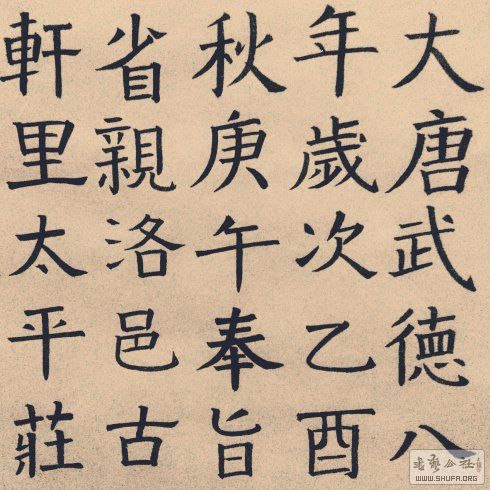 大唐武德八
年歲次乙酉
秋庚午奉旨
省親洛邑古
軒里太平莊
WWW.SHUFA.ORG